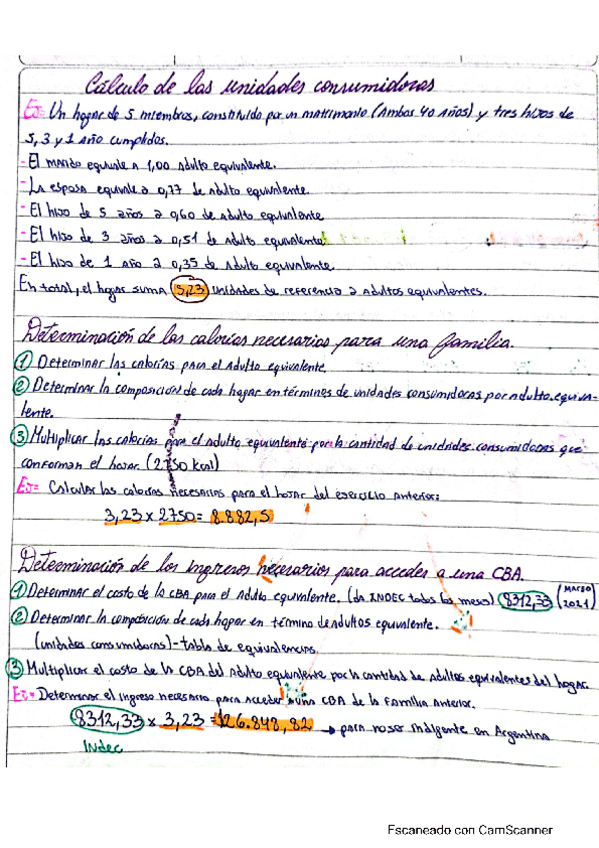 Cálculo de las unidades consumidoras
Ej= Un hogar de 5 miembros, constituido por un matrimonio (Ambos 40 años) y tres hijos de
5, 3 y 1 año cumplidos.
- El marido equivale a 1,00 Adulto equivalente.
- La esposa equivale a 0,77 de Adulto equivalente.
- El hijo de 5 años a 0,60 de Adulto equivalente
- El hijo de 3 años a 0,51 de Adulto equivalente
- El hijo de 1 año a 0,35 de Adulto equivalente.
En total, el hogar suma 3,23 unidades de referencia a adultos equivalentes.
Determinación de las calorías necesarias para una familia.
① Determinar las calorías para el Adulto equivalente
② Determinar la composición de cada hogar en términos de unidades consumidoras por adulto equiva-
lente.
③ Multiplicar las calorías para el adulto equivalente por la cantidad de unidades consumidoras que
conforman el hogar. (2750 kcal)
Ej= Calcular las calorías necesarias para el hogar del ejercicio anterior:
3,23 x 2750 = 8.882,5
Determinación de los Ingresos necesarios para acceder a una CBA.
① Determinar el costo de la CBA para el Adulto equivalente. (da INDEC todos los meses) 8312,33 (Marzo 2021)
② Determinar la composición de cada hogar en término de adultos equivalente.
(unidades consumidoras) - tabla de equivalencias.
③ Multiplicar el costo de la CBA del adulto equivalente por la cantidad de adultos equivalentes del hogar.
Ej= Determinar el ingreso necesario para acceder a una CBA de la familia anterior.
8312,33 x 3,23 = 26.848,82 → para no ser indigente en Argentina
Indec
Escaneado con CamScanner